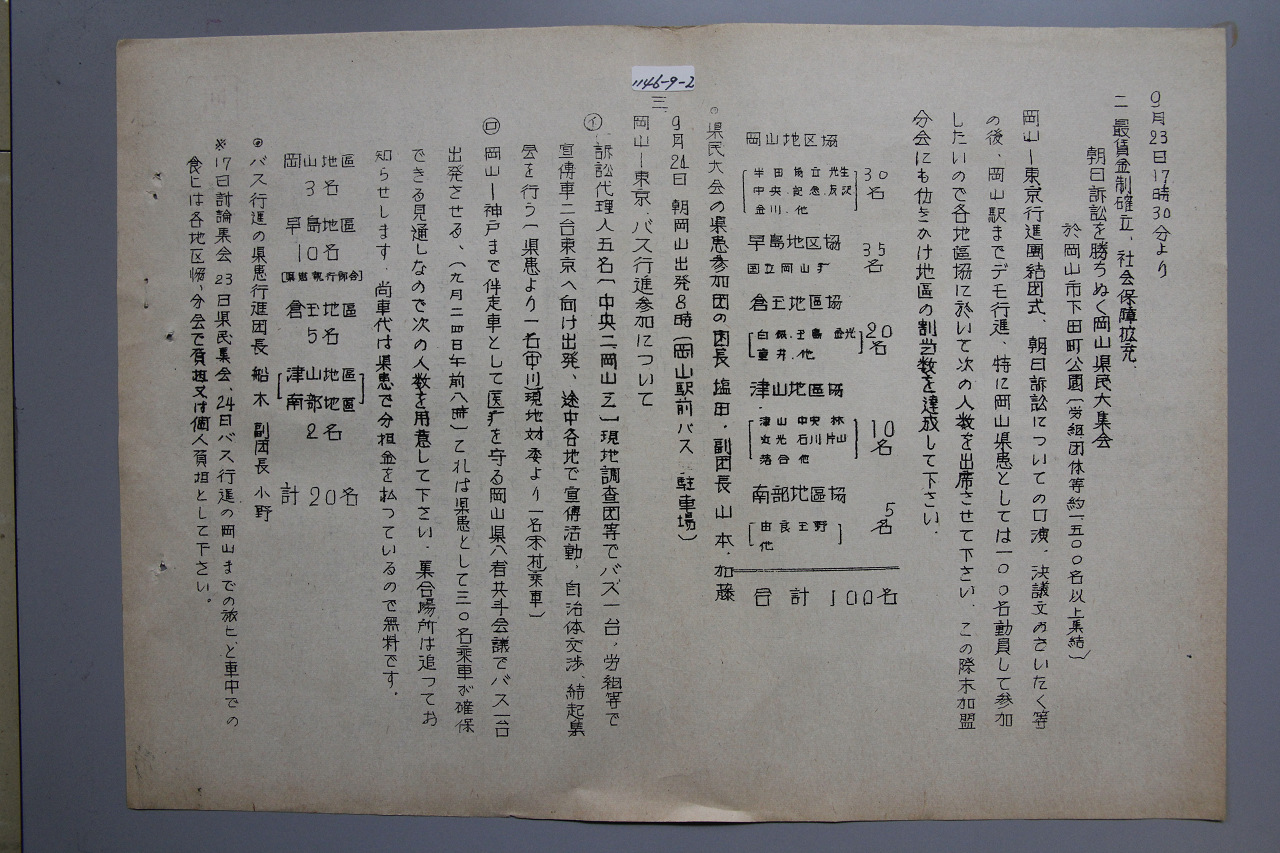 1146-9-2
9月23日17時30分より
二 最賃金制確立、社会保障拡充、
朝日訴訟を勝ちぬく岡山県民大集会
於岡山市下田町公園（労組、団体等約一、五〇〇名以上集結）
岡山ー東京行進團結団式、朝日訴訟についての口演、決議文のさいたく等
の後、岡山駅までデモ行進、特に岡山県患としては一〇〇名動員して参加
したいので各地區協に於いて次の人数を出席させて下さい、この際未加盟
分会にも仂きかけ地區の割当数を達成して下さい．
岡山地区協
30名
早島地区協
35名
国立岡山療
倉玉地區協
20名
津山地區協
10名
南部地區協
5名
由良 玉野
他
合計 100名
○県民大会の県患参加団の団長 塩田．副団長 山本．加藤
9月24日 朝岡山出発8時（岡山駅前バス 駐車場）
三
岡山ー東京．バス行進参加について
㋑訴訟代理人五名（中央二岡山三）現地調査団等でバス一台，労組等で
宣傳車二台東京へ向け出発、途中各地で宣傳活動，自治体交渉、結起集
会を行う（県患より一名(市川)現地対本より一名(木村)乗車）
㋺岡山ー神戸まで伴走車として医療を守る岡山県八者共斗会議でバス一台
出発させる、（九月二四日午前八時）これは県患として三〇名乗車が確保
できる見通しなので次の人数を用意して下さい．集合場所は追つてお
知らせします．尚車代は県患で分担金を払つているので無料です．
岡山地區
3名
早島地區
10名
[県患執行部会]
倉玉地區
5名
津山地區
南部地區
2名
計 20名
◉バス行進の県患行進団長 船木 副団長 小野
※17日討論集会、23日県民集会、24日バス行進の岡山までの旅ヒ、と車中での
食ヒは各地区協、分会で負担又は個人負担として下さい。